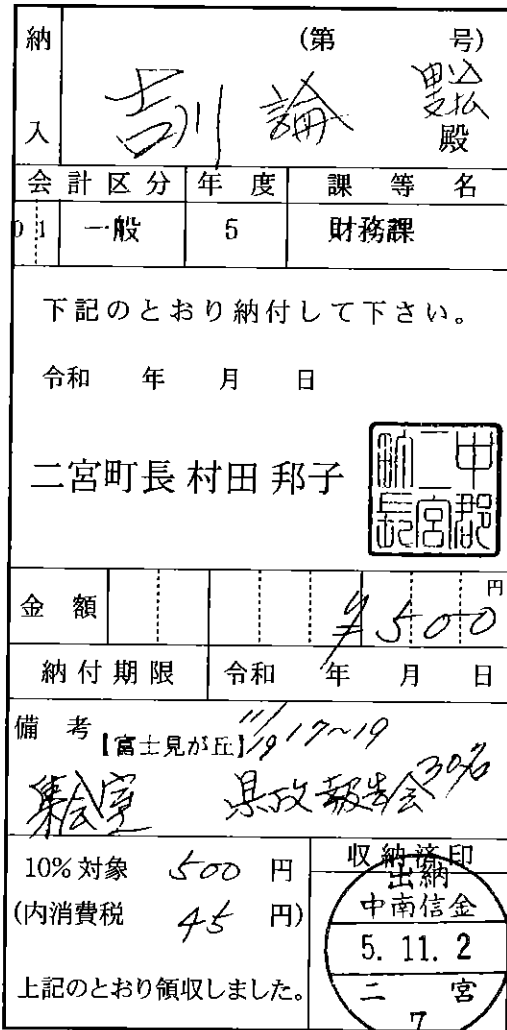 納入
(第　　号)
吉川 諭
殿
会計区分 年度 課等名
01 一般 5 財務課
下記のとおり納付して下さい。
令和　年　月　日
二宮町長 村田 邦子
中郡二宮町長
金額 ¥500円
納付期限 令和　年　月　日
備考【富士見が丘】11/19 17~19
集会室 県政報告会 30名
10%対象 500 円
(内消費税 45 円)
上記のとおり領収しました。
収納済印
出納
中南信金
5.11.2
二宮
7